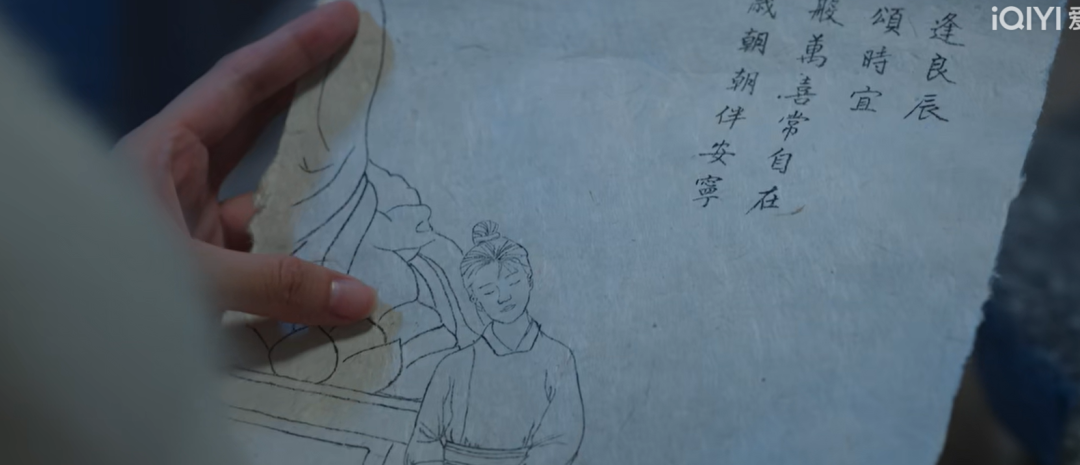 iQIYI 爱
逢良辰
頌時宜
般萬喜常自在
歲朝朝伴安寧